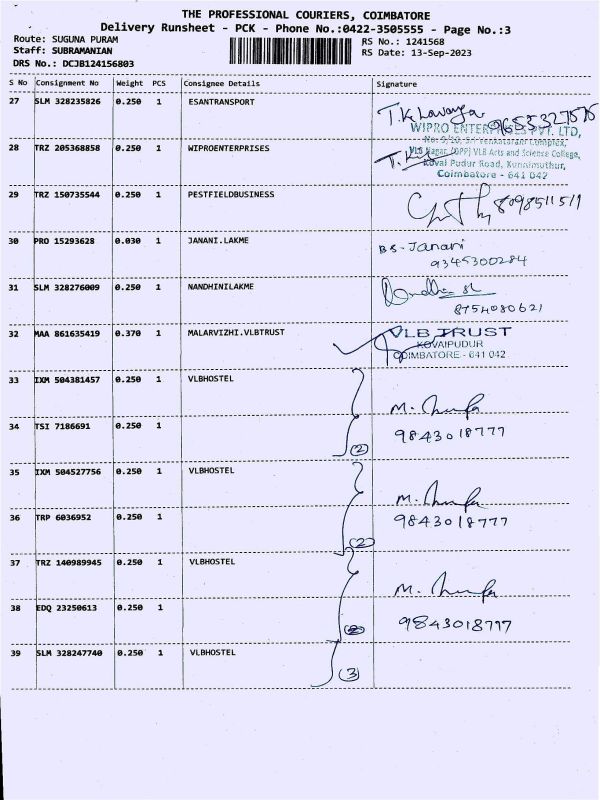 THE PROFESSIONAL COURIERS, COIMBATORE
Delivery Runsheet - PCK - Phone No.:0422-3505555 - Page No.:3
Route: SUGUNA PURAM
RS No.: 1241568
Staff: SUBRAMANIAN
RS Date: 13-Sep-2023
DRS No.: DCJB124156803
S No Consignment No Weight PCS Consignee Details Signature
27 SLM 328235826 0.250 1 ESANTRANSPORT
T.K Lavanya 9655327576
WIPRO ENTERPRISES PVT. LTD,
No: 9/10, Sri Venkataram Complex,
28 TRZ 205368858 0.250 1 WIPROENTERPRISES
VLB Nagar, (OPP) VLB Arts and Science College,
Kovai Pudur Road, Kunnimuthur,
Coimbatore - 641 042
29 TRZ 150735544 0.250 1 PESTFIELDBUSINESS
8098511511
30 PRO 15293628 0.030 1 JANANI.LAKME
B.S - Janani
9345300284
31 SLM 328276009 0.250 1 NANDHINILAKME
8754080621
32 MAA 861635419 0.370 1 MALARVIZHI.VLBTRUST
VLB TRUST
KOVAIPUDUR
COIMBATORE - 641 042
33 IXM 504381457 0.250 1 VLBHOSTEL
34 TSI 7186691 0.250 1
9843018777
(2)
35 IXM 504527756 0.250 1 VLBHOSTEL
36 TRP 6036952 0.250 1
9843018777
(2)
37 TRZ 140989945 0.250 1 VLBHOSTEL
38 EDQ 23250613 0.250 1
9843018777
39 SLM 328247740 0.250 1 VLBHOSTEL
(3)